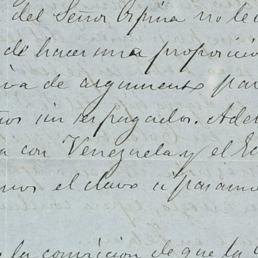 del Señor Ospina no le
de hacer una proposicio
iva de argumento para
ños sin ser pagados. Ade
a con Venezuela y el Ec
mos el clavo
la conviccion de que la